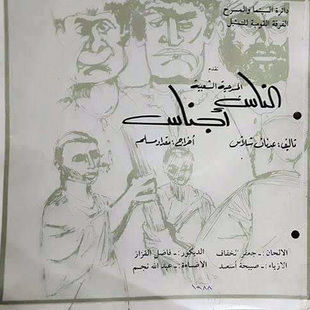 دائرة السينما والمسرح
الفرقة القومية للتمثيل
تقدم
المسرحية الشعبية
الناس أجناس
تأليف: عدنان شلاش أخراج: مقداد مسلم
الالحان :ـ جعفر الخفاف الديكور :ـ فاضل القزاز
الازياء :ـ صبيحة أسعد الأضاءة :ـ عبدالله نجم
١٩٨٨